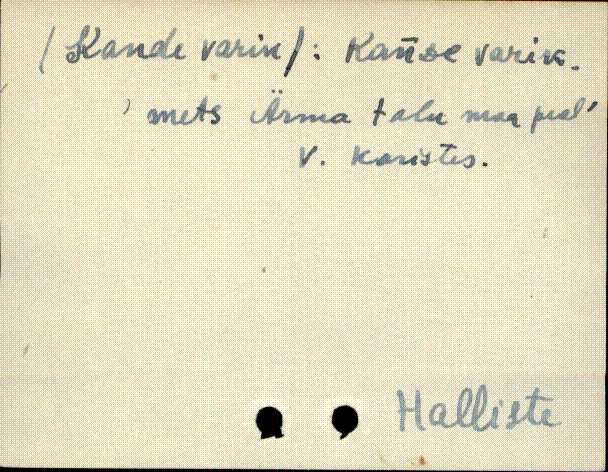 /Kande varik/: Kańse varik.
' mets Ärma talu maa peal'
V. Karistes.
Halliste